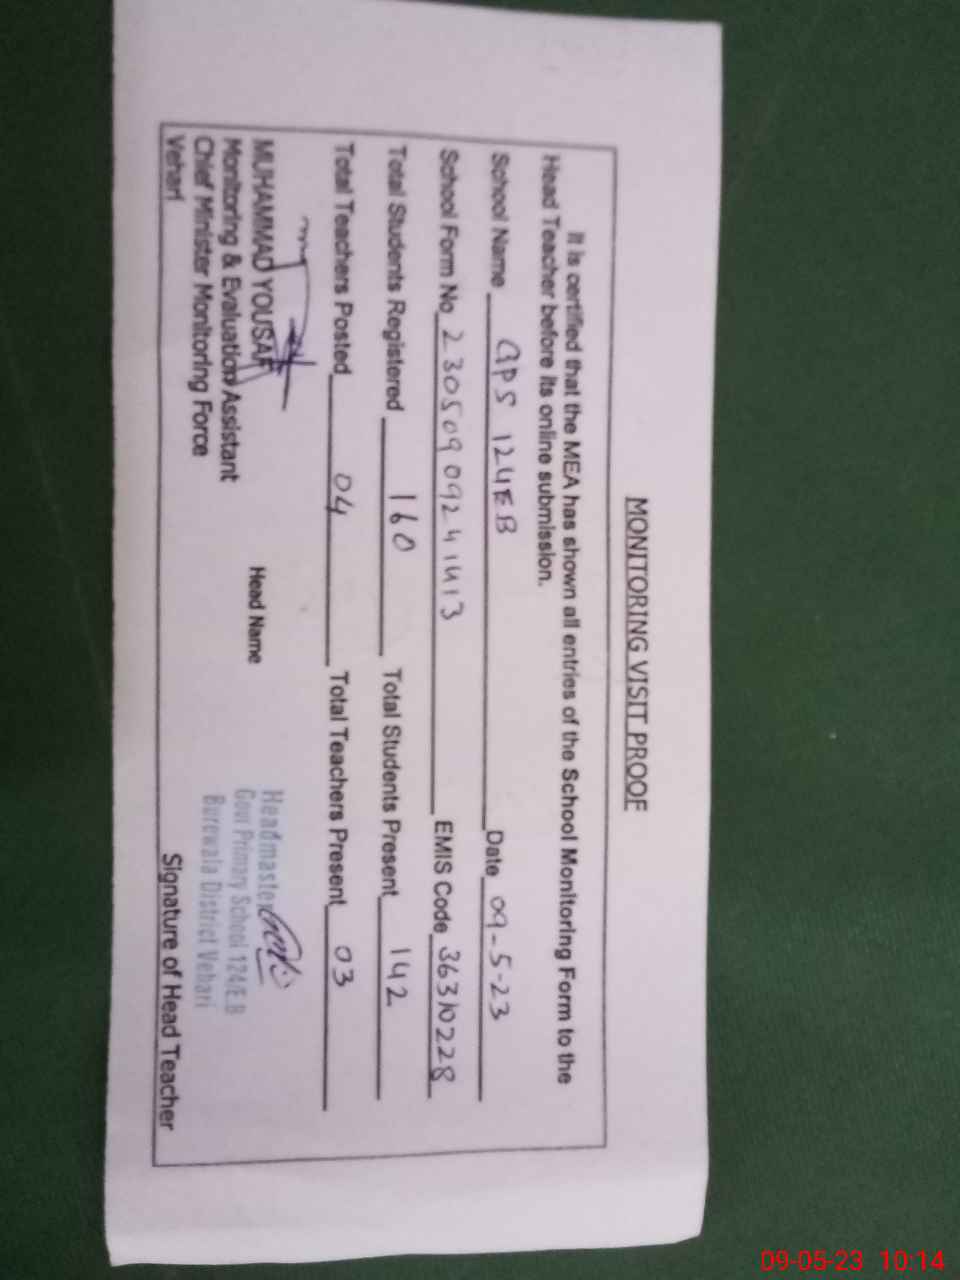 MONITORING VISIT PROOF
It is certified that the MEA has shown all entries of the School Monitoring Form to the
Head Teacher before its online submission.
School Name GPS 124EB Date 09-5-23
School Form No 2305090924 1413 EMIS Code 36310228
Total Students Registered 160 Total Students Present 142
Total Teachers Posted 04 Total Teachers Present 03
MUHAMMAD YOUSAF
Monitoring & Evaluation Assistant
Chief Minister Monitoring Force
Vehari
Head Name
Headmaster
Govt Primary School 124/E.B
Burewala District Vehari
Signature of Head Teacher
09-05-23 10:14